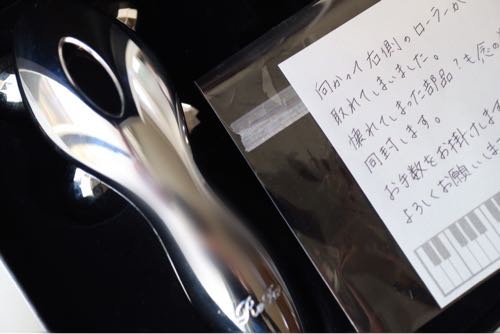 向かって右側のローラーが
取れてしまいました。
壊れてしまった部品?も念の
同封します。
お手数をお掛けしま
よろしくお願いしま